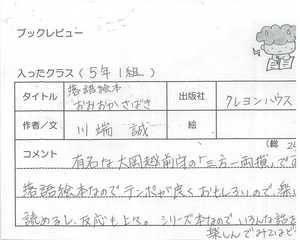 ブックレビュー
入ったクラス(5年1組)
タイトル 落語絵本 おおおかさばき 出版社 クレヨンハウス
作者/文 川端 誠 絵
(総
コメント 有名な大岡越前守の「三方一両損」で
落語絵本なのでテンポが良くおもしろいので、楽し
読めるし、反応も上々。シリーズ本なので いろんな話を
楽しんでみては